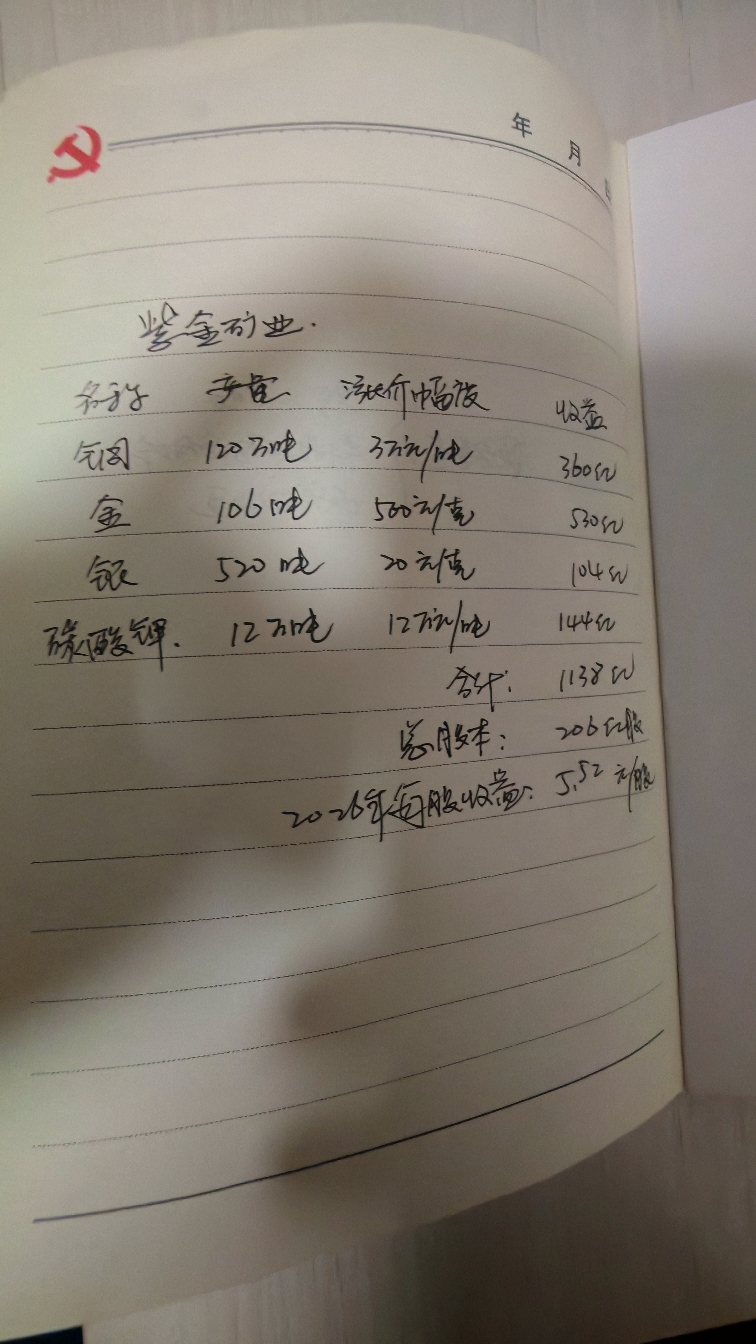 年 月 日
紫金矿业.
名称 产量 涨价幅度 收益
铜 120万吨 3万元/吨 360亿
金 106吨 500元/克 530亿
银 520吨 20元/克 104亿
碳酸锂. 12万吨 12万元/吨 144亿
合计: 1138亿
总股本: 206亿股
2026年每股收益: 5.52元/股